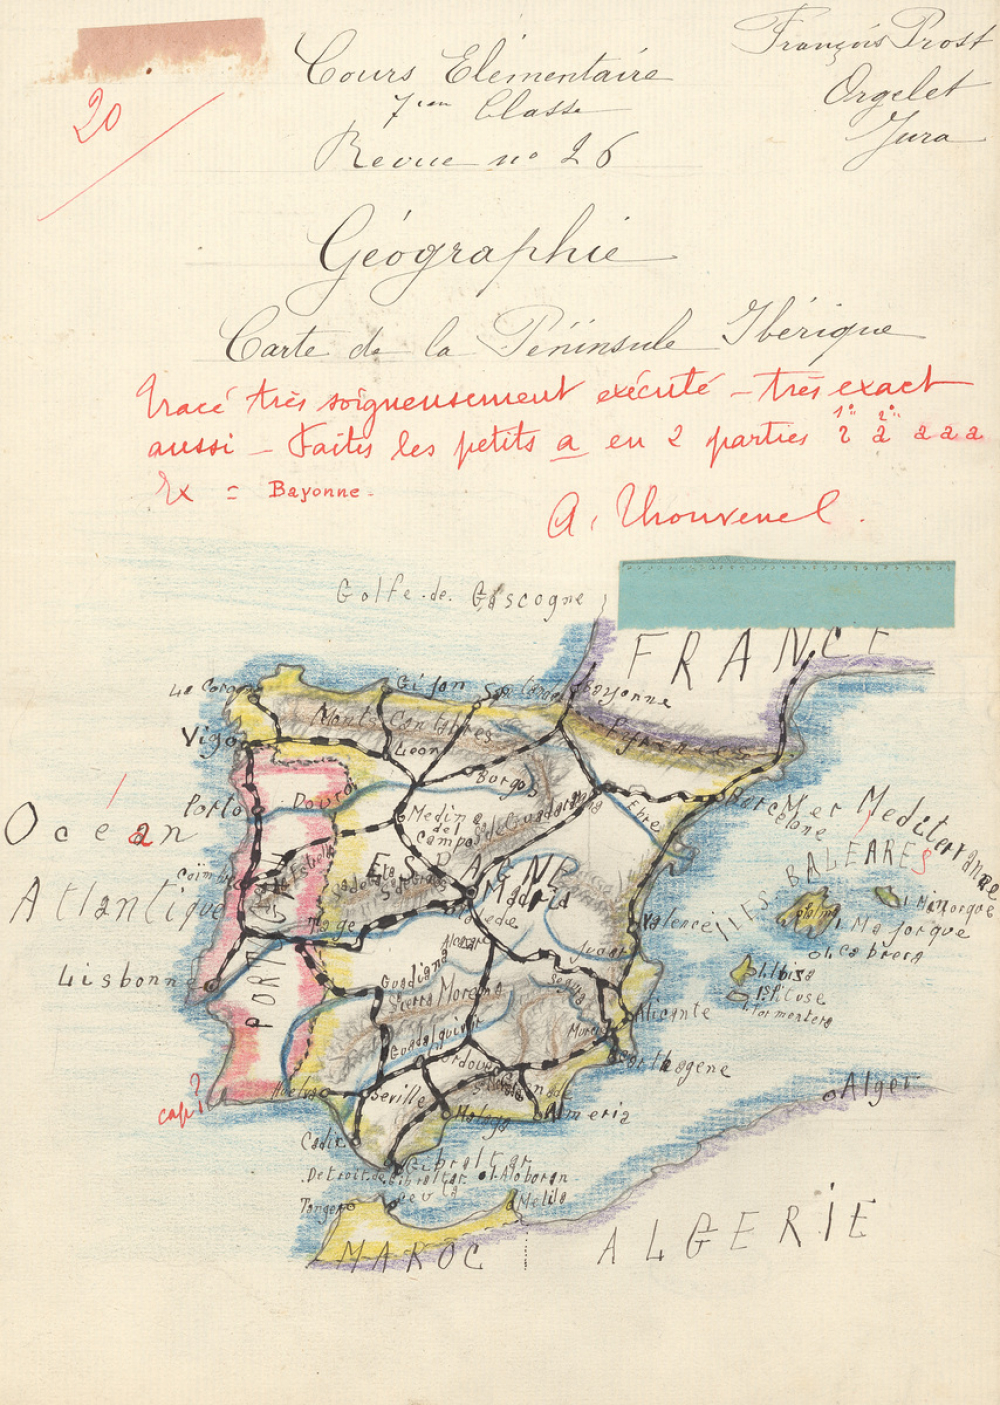 François Prost
Orgelet
Jura
20
Cours Elémentaire
7ème Classe
Revue no 26
Géographie
Carte de la Péninsule Ibérique
Tracé très soigneusement exécuté - très exact
aussi - Faites les petits a en 2 parties 1° 2° a a a
Ex = Bayonne.
A. Thouvenel.
Golfe de Gascogne
FRANCE
La Corogne
Gijon
Santander
Bayonne
Monts Cantabres
Pyrénées
Vigo
Leon
Burgos
Porto
Douro
Medina
del
Campo
Sa de Guadarrama
Ebre
Barcelone
Mer Mediterranée
Océan
Atlantique
ESPAGNE
Madrid
Coïmbre
Sa Estrella
Tage
Tolède
Valence
ILES BALEARES
Palma
I. Minorque
I. Majorque
I. Cabrera
I. Ibisa
I. formentera
Lisbonne
PORTUGAL
Alcazar
Jucar
Guadiana
Sierra Morena
Segura
Alicante
Murcie
Guadalquivir
Cordoue
Carthagène
cap?
Huelva
Séville
Sa Nevada
Malaga
Almeria
Alger
Cadix
Gibraltar
Détroit de Gibraltar
I. Alboran
Tanger
Ceuta
Melila
MAROC
ALGERIE